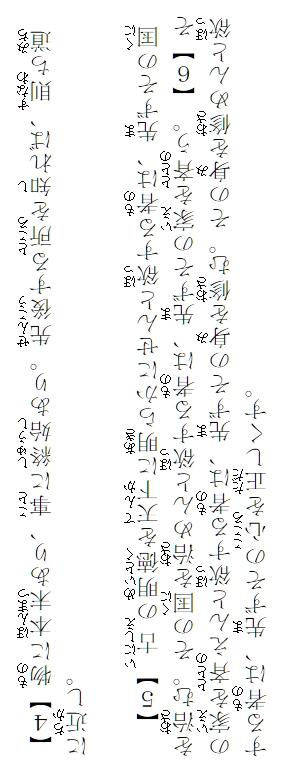 【4】物に本末あり、事に終始あり。先後する所を知れば、則ち道
に近し。
【5】古の明徳を天下に明らかにせんと欲する者は、先ずその国
を治む。その国を治めんと欲する者は、先ずその家を斉う。【6】そ
の家を斉えんと欲する者は、先ずその身を修む。その身を修めんと欲
する者は、先ずその心を正しくす。